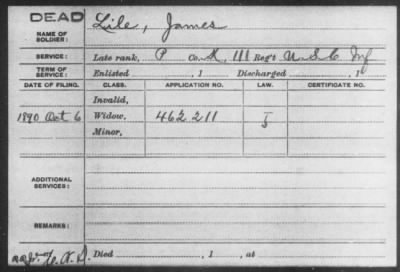 DEAD
NAME OF SOLDIER: Lile, James
SERVICE: Late rank, P Co. K, 111 Reg't U.S.C. Inf
TERM OF SERVICE: Enlisted , 1 Discharged , 1
DATE OF FILING. CLASS. APPLICATION NO. LAW. CERTIFICATE NO.
Invalid,
1890 Oct 6 Widow, 462 211
Minor,
ADDITIONAL SERVICES:
REMARKS:
Died , 1 , at